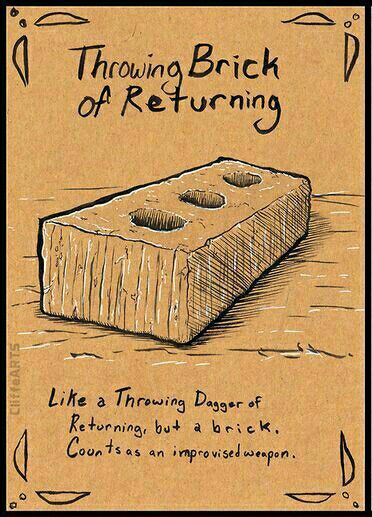 Throwing Brick
of Returning
CliffeARTS
Like a Throwing Dagger of
Returning, but a brick.
Counts as an improvised weapon.